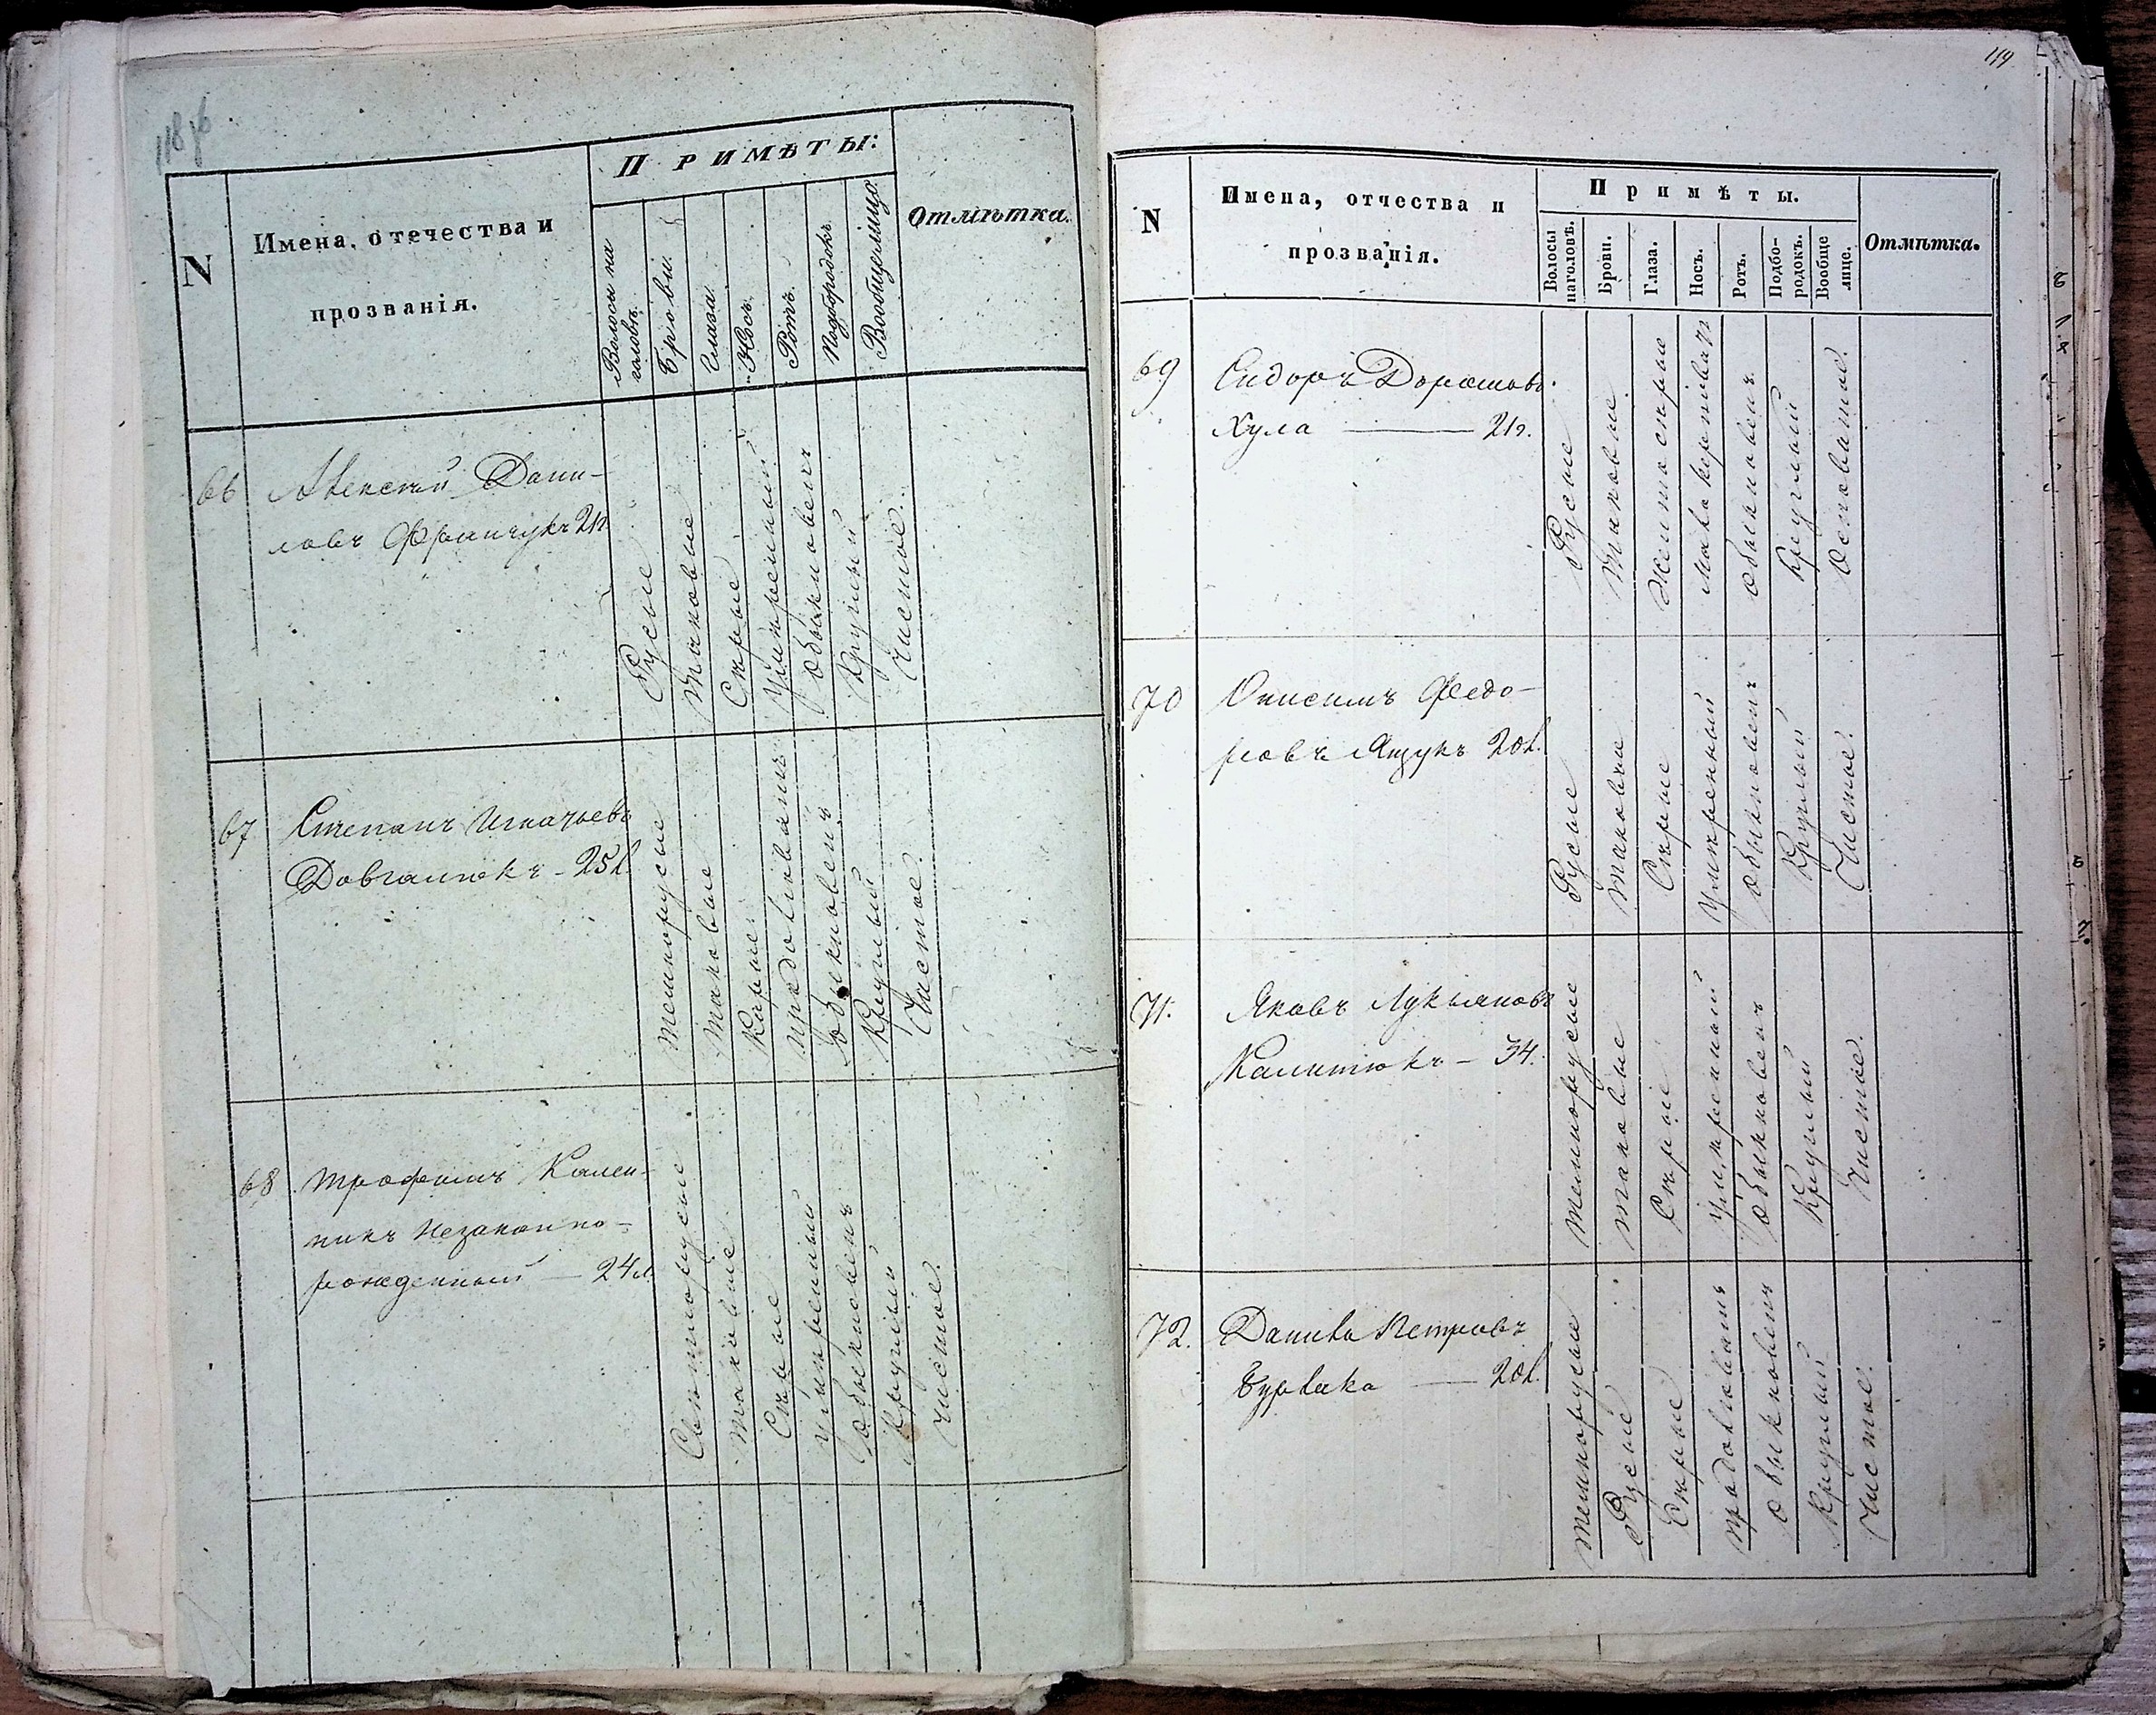 118об
N
Имена, отечества и
прозванія.
ПРИМѢТЫ:
Волосы на
головѣ.
Брови.
Глаза.
Носъ.
Ротъ.
Подбородокъ
Вообщелицо
Отмѣтка.
66
Алексѣй Дани-
ловъ Франчукъ 21л.
Русые
Таковые
Сѣрые
Умѣренный
Обыкновенъ
Круглый
Чистое.
67
Степанъ Игнатьевъ
Довганюкъ - 25л.
Темнорусые
Таковые
Каріе
Продолговатъ
Обыкновенъ
Круглый
Чистое.
68
Трофимъ Кален-
никъ Незаконно-
рожденный — 24л.
Свѣтлорусые
Таковые
Сѣрые
Умѣренный
Обыкновенъ
Круглый
Чистое.
119
N
Имена, отчества и
прозванія.
Примѣты.
Волосы
наголовѣ.
Брови.
Глаза.
Носъ.
Ротъ.
Подбо-
родокъ.
Вообще
лице.
Отмѣтка.
69
Сидоръ Дорошовъ
Хула — 21г.
Русые
Таковые
Желтосѣрые
Обыкновенъ
Круглый
70
Онисимъ Федо-
ровъ Ящукъ 20л.
Русые
Таковые
Сѣрые
Умѣренный
Обыкновенъ
Круглый
Чистое.
71.
Яковъ Лукьяновъ
Калитюкъ — 34.
Темнорусые
Таковые
Сѣрые
Умѣренный
Обыкновенъ
Круглый
Чистое.
72.
Данило Петровъ
Бурлака — 20л.
Темнорусые
Русые
Сѣрые
Продолговатъ
Обыкновенъ
Круглый
Чистое.